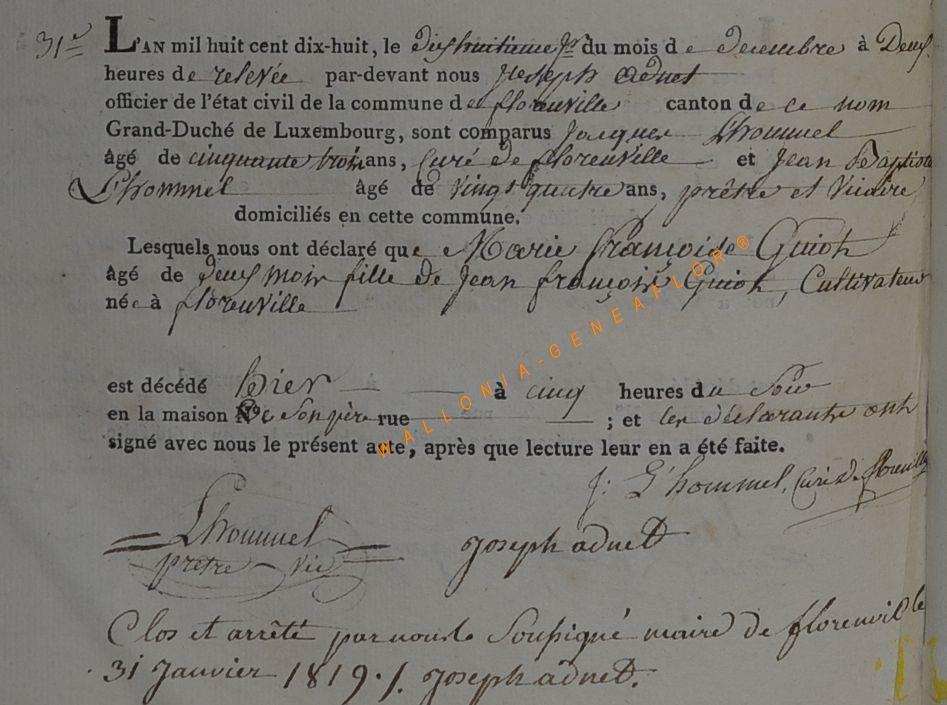 31e L'AN mil huit cent dix-huit, le dixhuitieme Jr du mois de decembre à Deux
heures de relevée par-devant nous Joseph adnet
officier de l'état civil de la commune de florenville canton de ce nom
Grand-Duché de Luxembourg, sont comparus Jacques L'hommel
âgé de cinquante trois ans, Curé de florenville et Jean Baptiste
L'hommel âgé de vingt quatre ans, prêtre et Vicaire
domiciliés en cette commune.
Lesquels nous ont déclaré que Marie françoise Guiot
âgé de deux mois fille de Jean françois Guiot, Cultivateur
née à florenville
est décédé hier à cinq heures du Soir
en la maison de Son père rue ; et les déclarants ont
signé avec nous le présent acte, après que lecture leur en a été faite.
J: L'hommel, Curé de florenville
Lhommel Joseph adnet
prêtre vic
Clos et arrêté par nous le Soussigné maire de florenville le
31 Janvier 1819./. Joseph adnet.
WALLONIA-GENEAFLOR ®